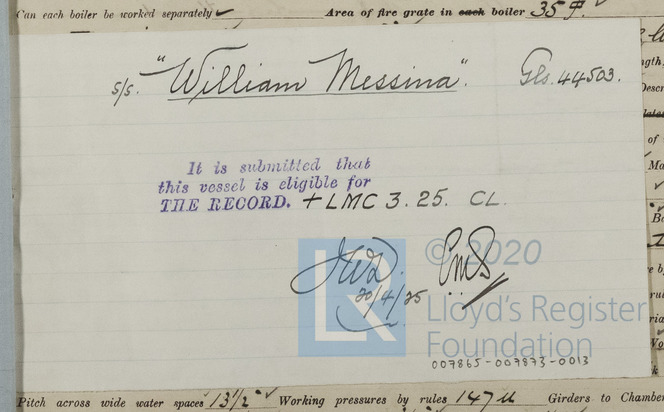 Can each boiler be worked separately ✓ Area of fire grate in each boiler 35
s/s. "William Messina". Gls. 44503.
It is submitted that
this vessel is eligible for
THE RECORD. + LMC 3. 25. CL.
20/4/25
© 2020
LR
Lloyd's Register
Foundation
007865-007873-0013
Pitch across wide water spaces 13½" Working pressures by rules 147 Girders to Chamber